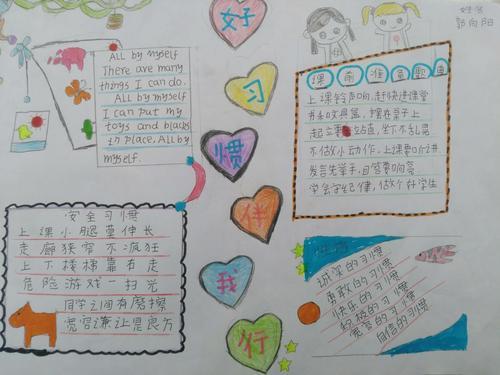 姓名
郭向阳
好
习
惯
伴
我
行
All by myself
There are many
things I can do.
All by myself
I can put my
toys and blocks
in place. All by
myself.
课前准备歌
上课铃声响,赶快进课堂
起立要站直,坐下不乱晃
不做小动作,上课要
发言先举手,回答要响亮
学会守纪律,做个好学生
安全习惯
上课小腿莫伸长
走廊狭窄不疯狂
上下楼梯靠右走
危险游戏一扫光
同学之间有磨擦
宽容谦让是良方
诚实的习惯
勇敢的习惯
快乐的习惯
积极的习惯
宽容的习惯
自信的习惯